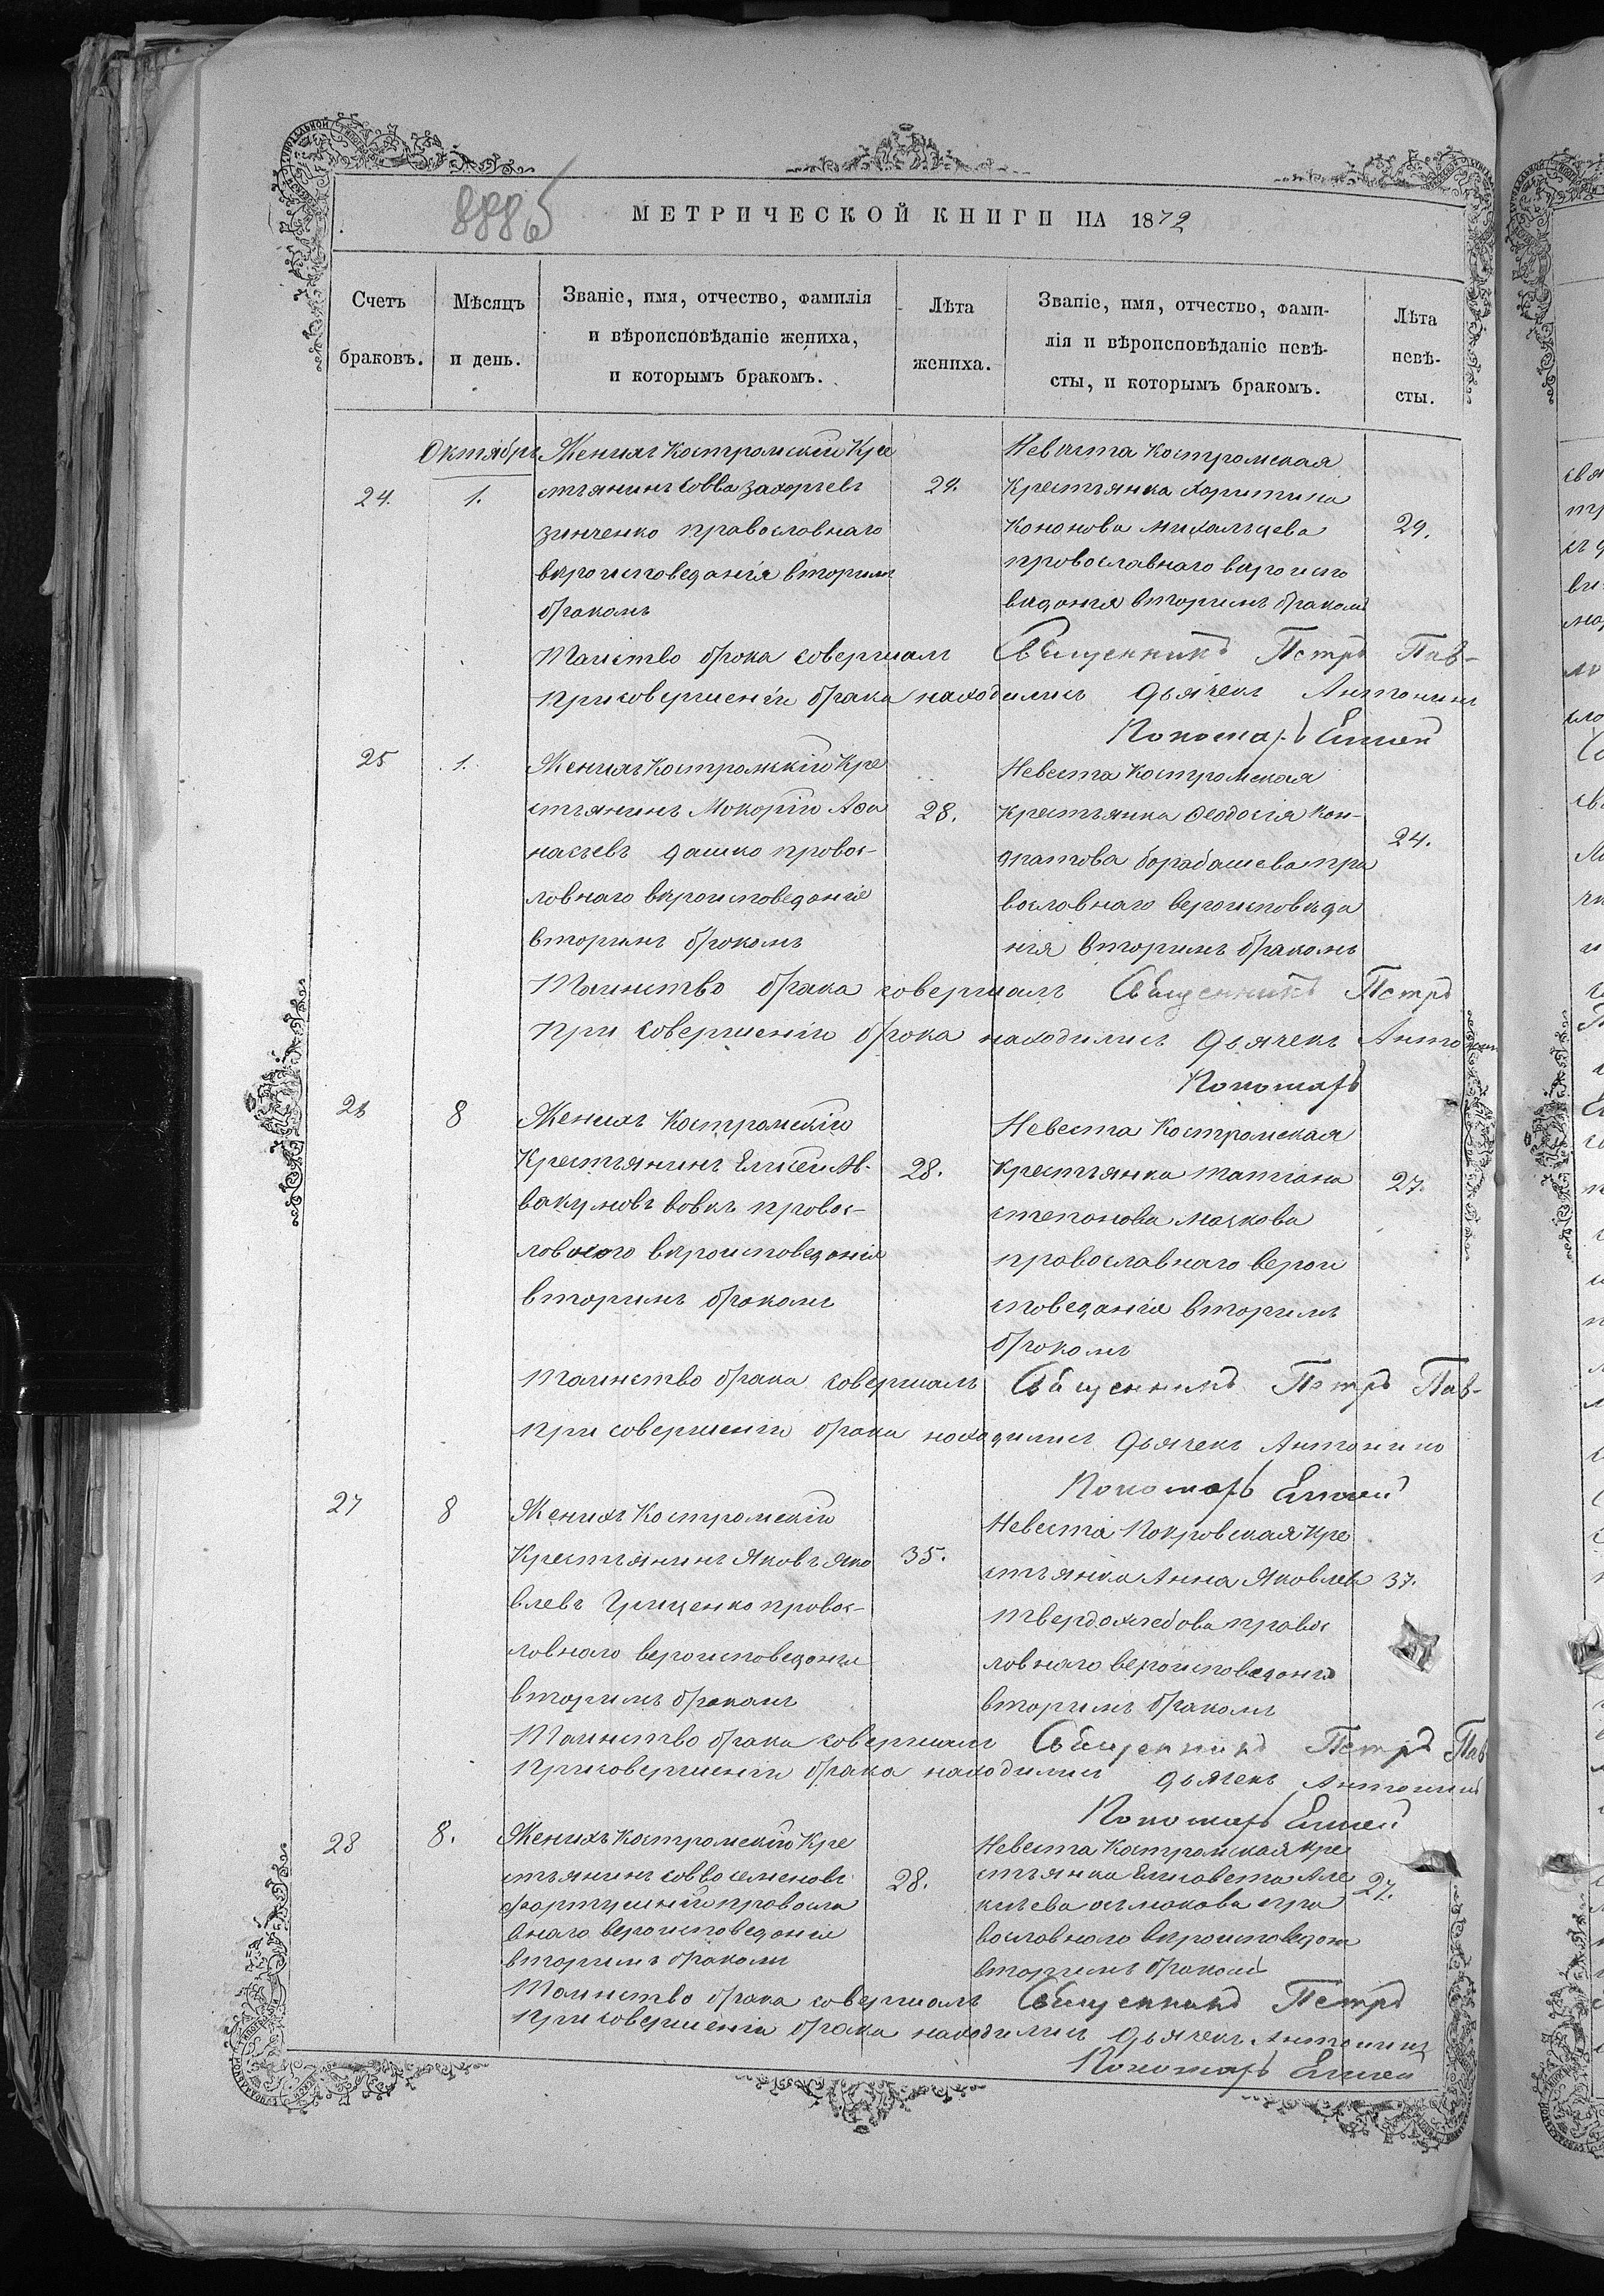 888об
МЕТРИЧЕСКОЙ КНИГИ НА 1872
Счетъ браковъ.
Мѣсяцъ и день.
Званіе, имя, отчество, фамилія
и вѣроисповѣданіе жениха,
и которымъ бракомъ.
Лѣта жениха.
Званіе, имя, отчество, фами-
лія и вѣроисповѣданіе невѣ-
сты, и которымъ бракомъ.
Лѣта невѣ-
сты.
Октябрь
24. 1.
Женихъ Костромскій Кре
стьянинъ Совва Захарьевъ
Зинченко православнаго
вѣроисповеданія вторимъ
бракомъ
29.
Невѣста Костромская
Крестьянка Харитина
Кононова Михальцева
православнаго вѣроиспо
вѣданія вторимъ бракомъ
29.
Таиство брака совершалъ Священникъ Петръ Пав-
При совершеніи брака находились дьячекъ Антонинъ
Пономарь Елисей
25 1.
Женихъ Костромскій Кре
стьянинъ Мокорій Афа
насьевъ Дашко правос-
лавнаго вѣроисповеданіе
вторимъ бракомъ
28.
Невеста Костромская
Крестьянка Феодосія Кон-
дратова Борабашева пра
вославнаго вероисповѣда
нія вторимъ бракомъ
24.
Таинство брака совершалъ Священникъ Петръ
При совершеніи брака находились дьячекъ Антонин
Пономарь
26 8
Женихъ Костромскій
Крестьянинъ Елисей Ав-
вакумовъ Вовкъ правос-
лавнаго вѣроисповеданія
вторимъ бракомъ
28.
Невеста Костромская
Крестьянка Татіана
Степанова Маскова
православнаго верои
споведанія вторимъ
бракомъ
27.
Таинство брака совершалъ Священникъ Петръ Пав-
При совершеніи брака находились дьячекъ Антонино
Пономарь Елисей
27 8
Женихъ Костромскій
Крестьянинъ Яковъ Яко
влевъ Грищенко правос-
лавнаго вероисповеданія
вторимъ бракомъ
35.
Невеста Покровская Кре
стьянка Анна Яковлева
Твердохлебова правос
лавнаго вероисповеданія
вторимъ бракомъ
37.
Таинство брака совершалъ Священникъ Петръ Пав
При совершеніи брака находились дьячекъ Антонинъ
Пономарь Елисей
28 8.
Женихъ Костромскій Кре
стьянинъ Совво Семеновъ
православ
внаго вероисповеданія
вторимъ бракомъ
28.
Невеста Костромская Кре
стьянка Елисавета Але
ксѣева пра
вославнаго вѣроисповедан
вторимъ бракомъ
27.
Таинство брака совершалъ Священникъ Петръ
При совершеніи брака находились дьячекъ Антонинъ
Пономарь Елисей